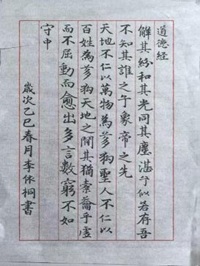 道德经
解其纷和其光同其塵湛兮似若存吾
不知其誰之子象帝之先
天地不仁以萬物為芻狗聖人不仁以
百姓為芻狗天地之間其猶橐籥乎虛
而不屈動而愈出多言數窮不如
守中
歲次乙巳春月李依桐書